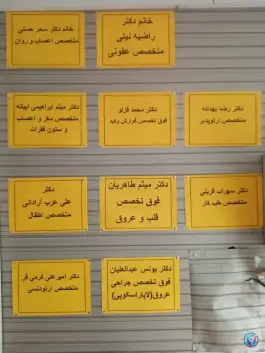 خانم دکتر
راضیه نیتی
متخصص عفونی
خانم دکتر سحر حسنی
متخصص اعصاب و روان
دکتر رضا بهدانه
متخصص ارتوپدی
دکتر محمد قزلو
فوق تخصص گوارش وکبد
دکتر میثم ابراهیمی ابیانه
متخصص مغز و اعصاب
و ستون فقرات
دکتر سهراب قربنی
متخصص طب کار
دکتر میثم طاهریان
فوق تخصص
قلب و عروق
دکتر
علی عرب آرادانی
متخصص اطفال
دکتر یونس عبدالعلیان
فوق تخصص جراحی
عروق(لاپاراسکوپی)
دکتر امیرعلی کرمی فر
متخصص ارتودنسی